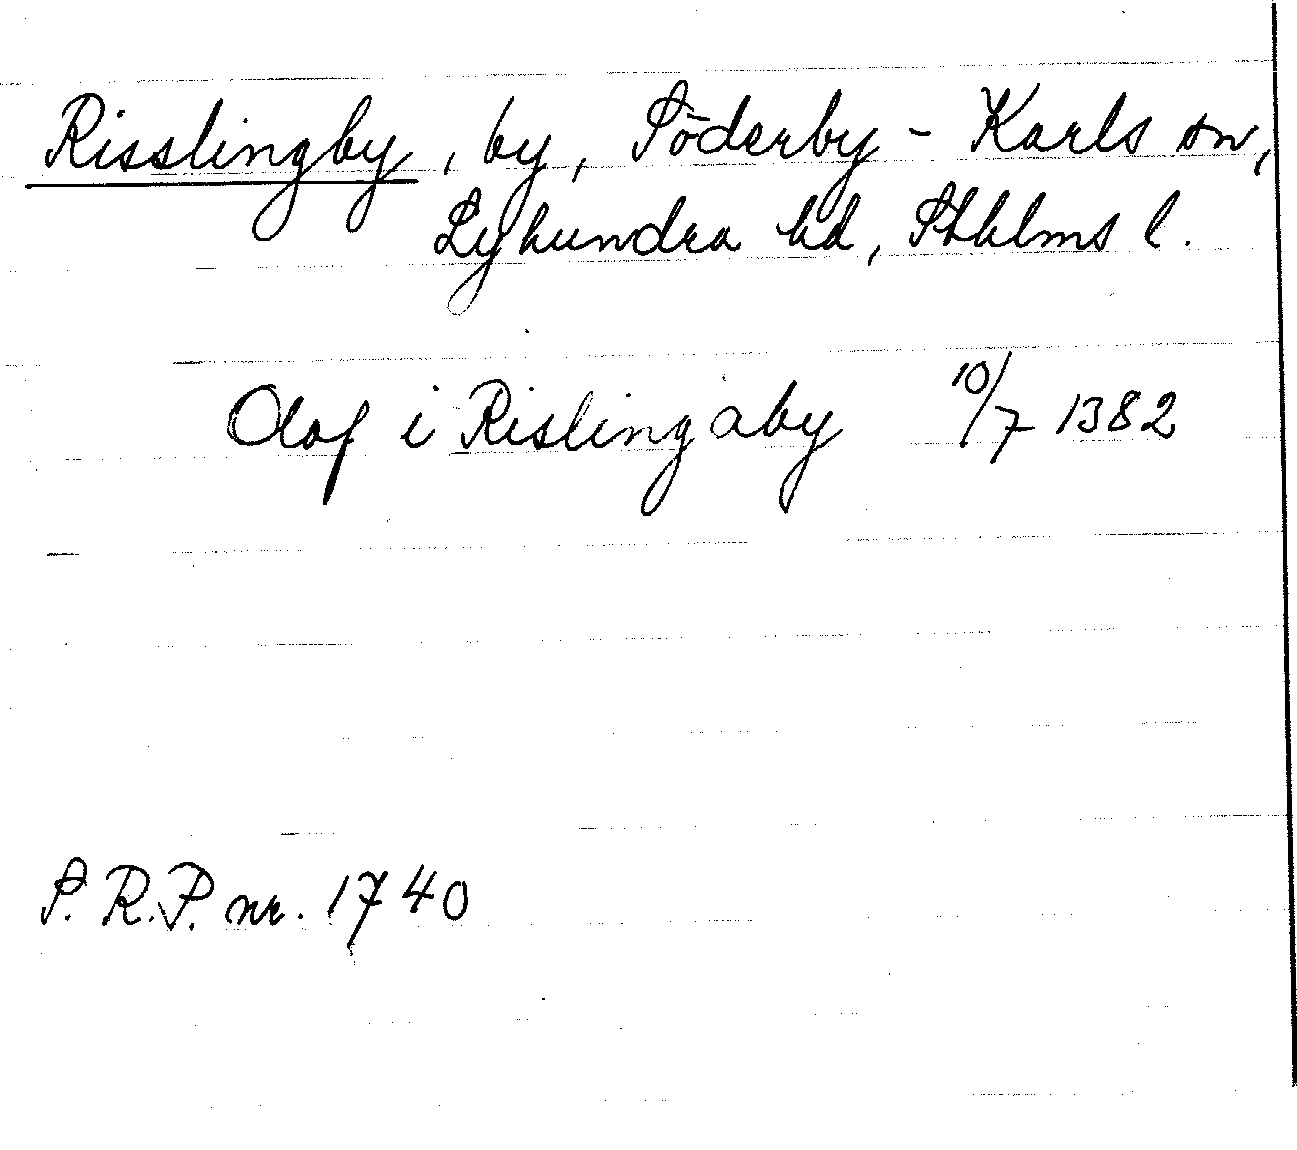 Risslingby, by, Söderby-Karls sn,
Lyhundra hd, Sthlms l.
Olof i Rislingaby 10/7 1382
S.R.P. nr. 1740